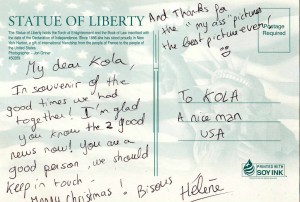 STATUE OF LIBERTY
The Statue of Liberty holds the Torch of Enlightenment and the Book of Law inscribed with
the date of the Declaration of Independence. Since 1886 she has stood proudly in New
York Harbor, a gift of international friendship from the people of France to the people of
the United States.
Photographer - Jon Ortner
And Thanks for
the "my ass" pictures
the best picture ever
Postage
Required
My dear Kola,
In souvenir of the
good times we had
together! I'm glad
you know the 2 good
news now! You are a
good person, we should
keep in touch -
Merry Christmas! Bisous
Hélène
To KOLA
A nice man
USA
PRINTED WITH
SOY INK